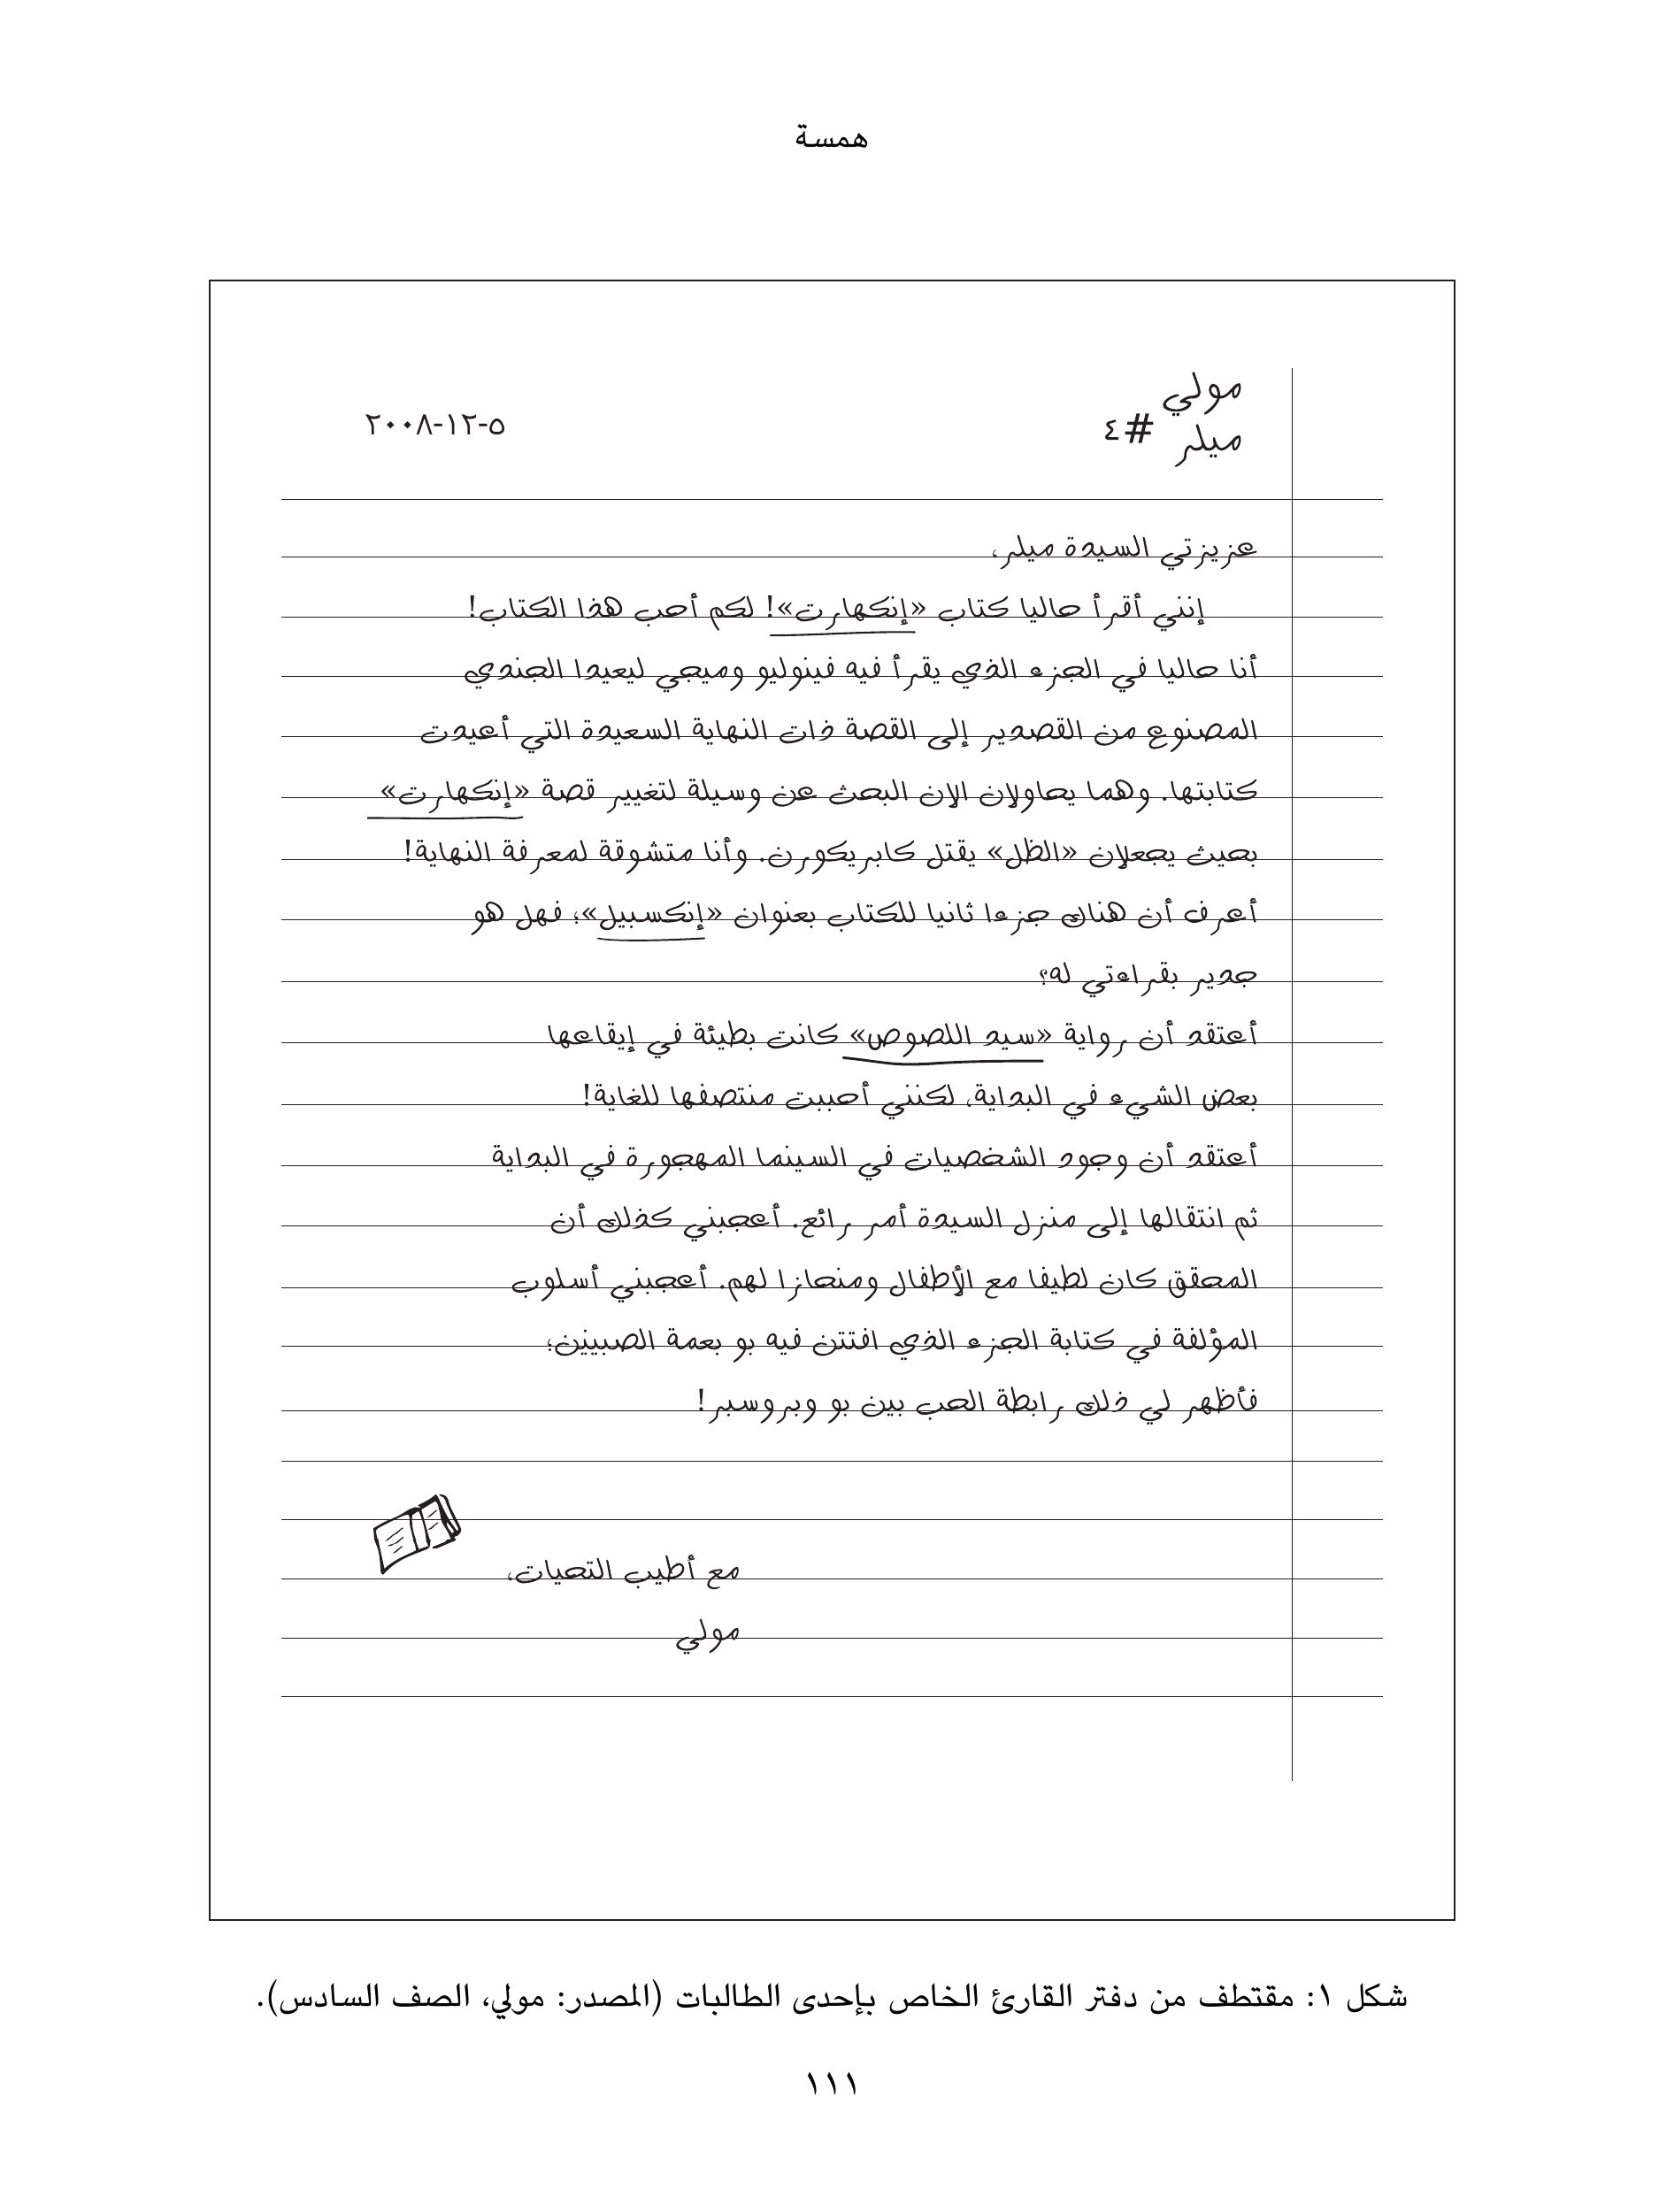 همسة
مولي
ميلر #٤
٥-١٢-٢٠٠٨
عزيزتي السيدة ميلر،
إنني أقرأ حاليا كتاب «إنكهارت»! لكم أحب هذا الكتاب!
أنا حاليا في الجزء الذي يقرأ فيه فينوليو وميجي ليعيدا الجندي
المصنوع من القصدير إلى القصة ذات النهاية السعيدة التي أعيدت
كتابتها. وهما يحاولان الان البحث عن وسيلة لتغيير قصة «إنكهارت»
بحيث يجعلان «الظل» يقتل كابريكورن. وأنا متشوقة لمعرفة النهاية!
أعرف أن هناك جزءا ثانيا للكتاب بعنوان «إنكسبيل»؛ فهل هو
جدير بقراءتي له؟
أعتقد أن رواية «سيد اللصوص» كانت بطيئة في إيقاعها
بعض الشيء في البداية، لكنني أحببت منتصفها للغاية!
أعتقد أن وجود الشخصيات في السينما المهجورة في البداية
ثم انتقالها إلى منزل السيدة أمر رائع. أعجبني كذلك أن
المحقق كان لطيفا مع الأطفال ومنحازا لهم. أعجبني أسلوب
المؤلفة في كتابة الجزء الذي افتتن فيه بو بعمة الصبيين؛
فأظهر لي ذلك رابطة الحب بين بو وبروسبر!
مع أطيب التحيات،
مولي
شكل ١: مقتطف من دفتر القارئ الخاص بإحدى الطالبات (المصدر: مولي، الصف السادس).
١١١